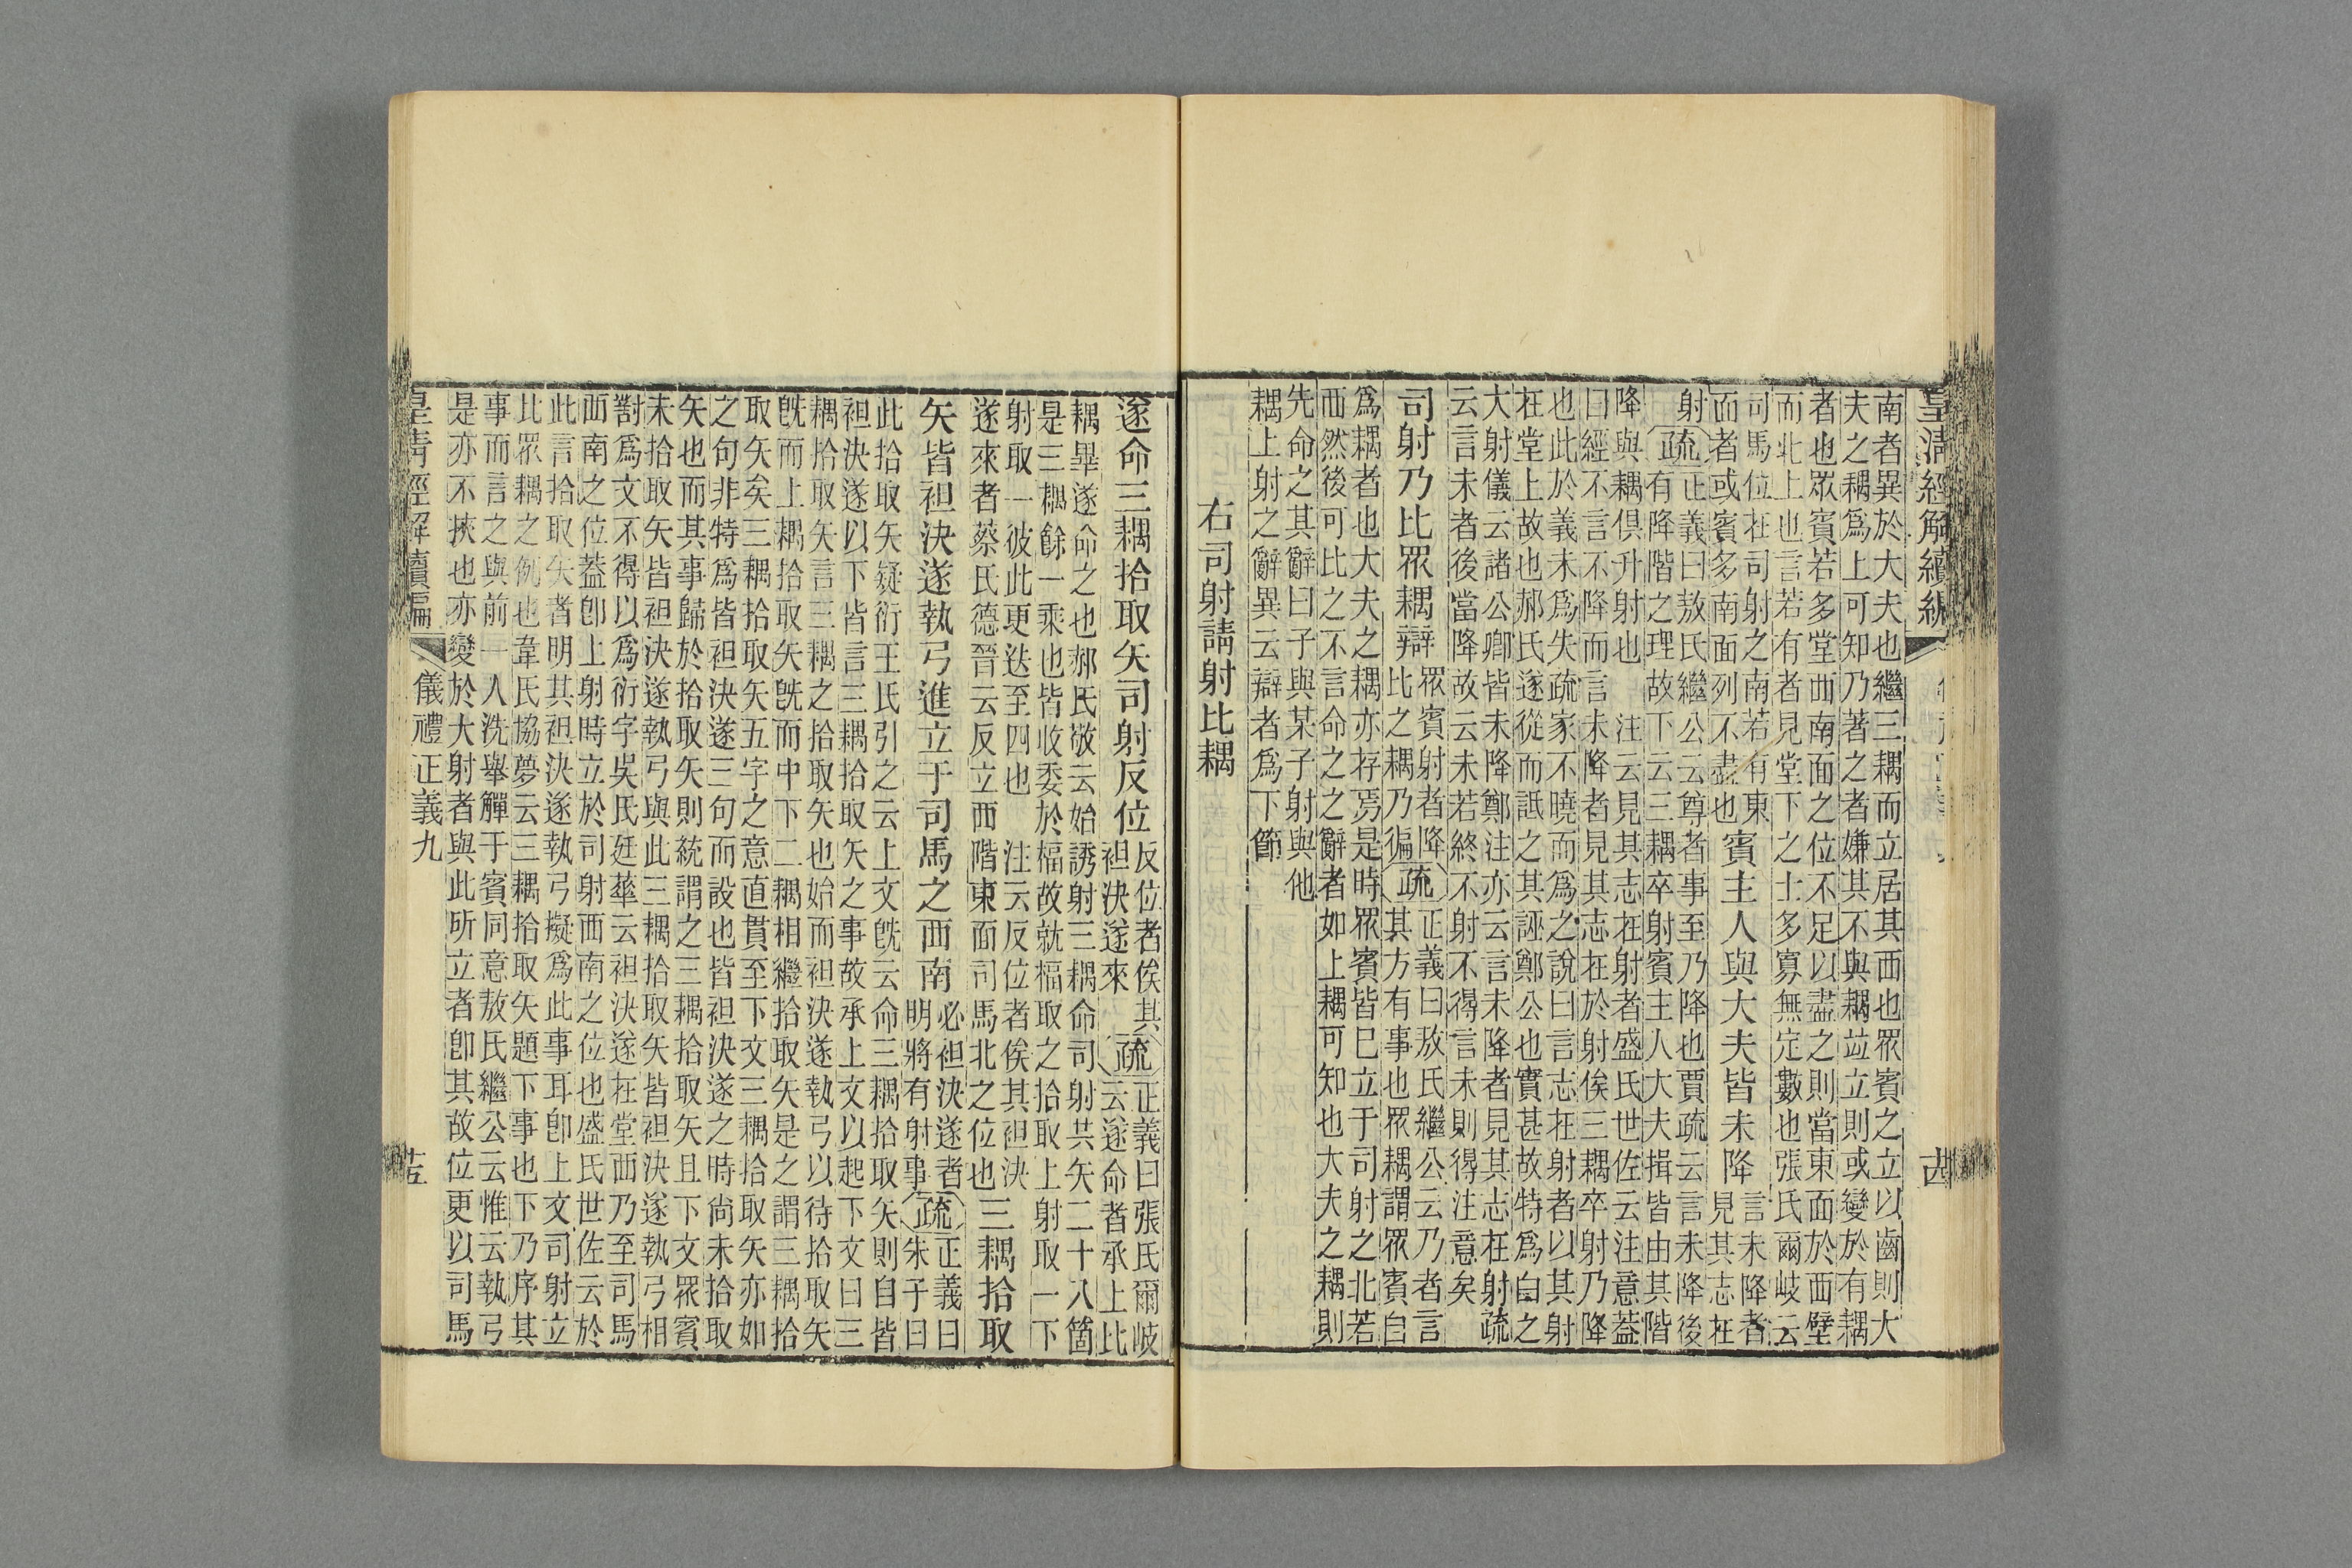 皇清經解續編
十四
南者異於大夫也繼三耦而立居其西也眾賓之立以齒則大
夫之耦爲上可知乃著之者嫌其不與耦竝立則或變於有耦
者也眾賓若多堂西南面之位不足以盡之則當東面於西壁
而北上也言若有者見堂下之士多寡無定數也張氏爾岐云
司馬位在司射之南若有東
面者或賓多南面列不盡也
賓主人與大夫皆未降
言未降者
見其志在
射
疏
正義曰敖氏繼公云尊者事至乃降也賈疏云言未降後
有降階之理故下云三耦卒射賓主人大夫揖皆由其階
降與耦俱升射也　注云見其志在射者盛氏世佐云注意葢
曰經不言不降而言未降者見其志在於射俟三耦卒射乃降
也此於義未爲失疏家不曉而爲之說曰言志在射者以其射
在堂上故也郝氏遂從而詆之其誣鄭公也實甚故特爲白之
大射儀云諸公卿皆未降鄭注亦云言未降者見其志在射疏
云言未者後當降故云未若終不射不得言未則得注意矣
司射乃比眾耦辯
眾賓射者降
比之耦乃徧
疏
正義曰敖氏繼公云乃者言
其方有事也眾耦謂眾賓自
爲耦者也大夫之耦亦存焉是時眾賓皆巳立于司射之北若
西然後可比之不言命之之辭者如上耦可知也大夫之耦則
先命之其辭曰子與某子射與他
耦上射之辭異云辯者爲下節
右司射請射比耦
遂命三耦拾取矢司射反位
反位者俟其
袒決遂來
疏
正義曰張氏爾岐
云遂命者承上比
耦畢遂命之也郝氏敬云始誘射三耦命司射共矢二十八箇
是三耦餘一乘也皆收委於楅故就楅取之拾取上射取一下
射取一彼此更迭至四也　注云反位者俟其袒決
遂來者蔡氏德晉云反立西階東面司馬北之位也
三耦拾取
矢皆袒決遂執弓進立于司馬之西南
必袒決遂者
明將有射事
疏
正義曰
朱子曰
此拾取矢疑衍王氏引之云上文旣云命三耦拾取矢則自皆
袒決遂以下皆言三耦拾取矢之事故承上文以起下文曰三
耦拾取矢言三耦之拾取矢也始而袒決遂執弓以待拾取矢
旣而上耦拾取矢旣而中下二耦相繼拾取矢是之謂三耦拾
取矢矣三耦拾取矢五字之意直貫至下文三耦拾取矢亦如
之句非特爲皆袒決遂三句而設也皆袒決遂之時尙未拾取
矢也而其事歸於拾取矢則統謂之三耦拾取矢且下文眾賓
未拾取矢皆袒決遂執弓與此三耦拾取矢皆袒決遂執弓相
對爲文不得以爲衍字吳氏廷華云袒決遂在堂西乃至司馬
西南之位葢卽上射時立於司射西南之位也盛氏世佐云於
此言拾取矢者明其袒決遂執弓擬爲此事耳卽上文司射立
比眾耦之例也韋氏協夢云三耦拾取矢題下事也下乃序其
事而言之與前一人洗舉觶于賓同意敖氏繼公云惟云執弓
是亦不挾也亦變於大射者與此所立者卽其故位更以司馬
皇清經解續編
儀禮正義九
十五